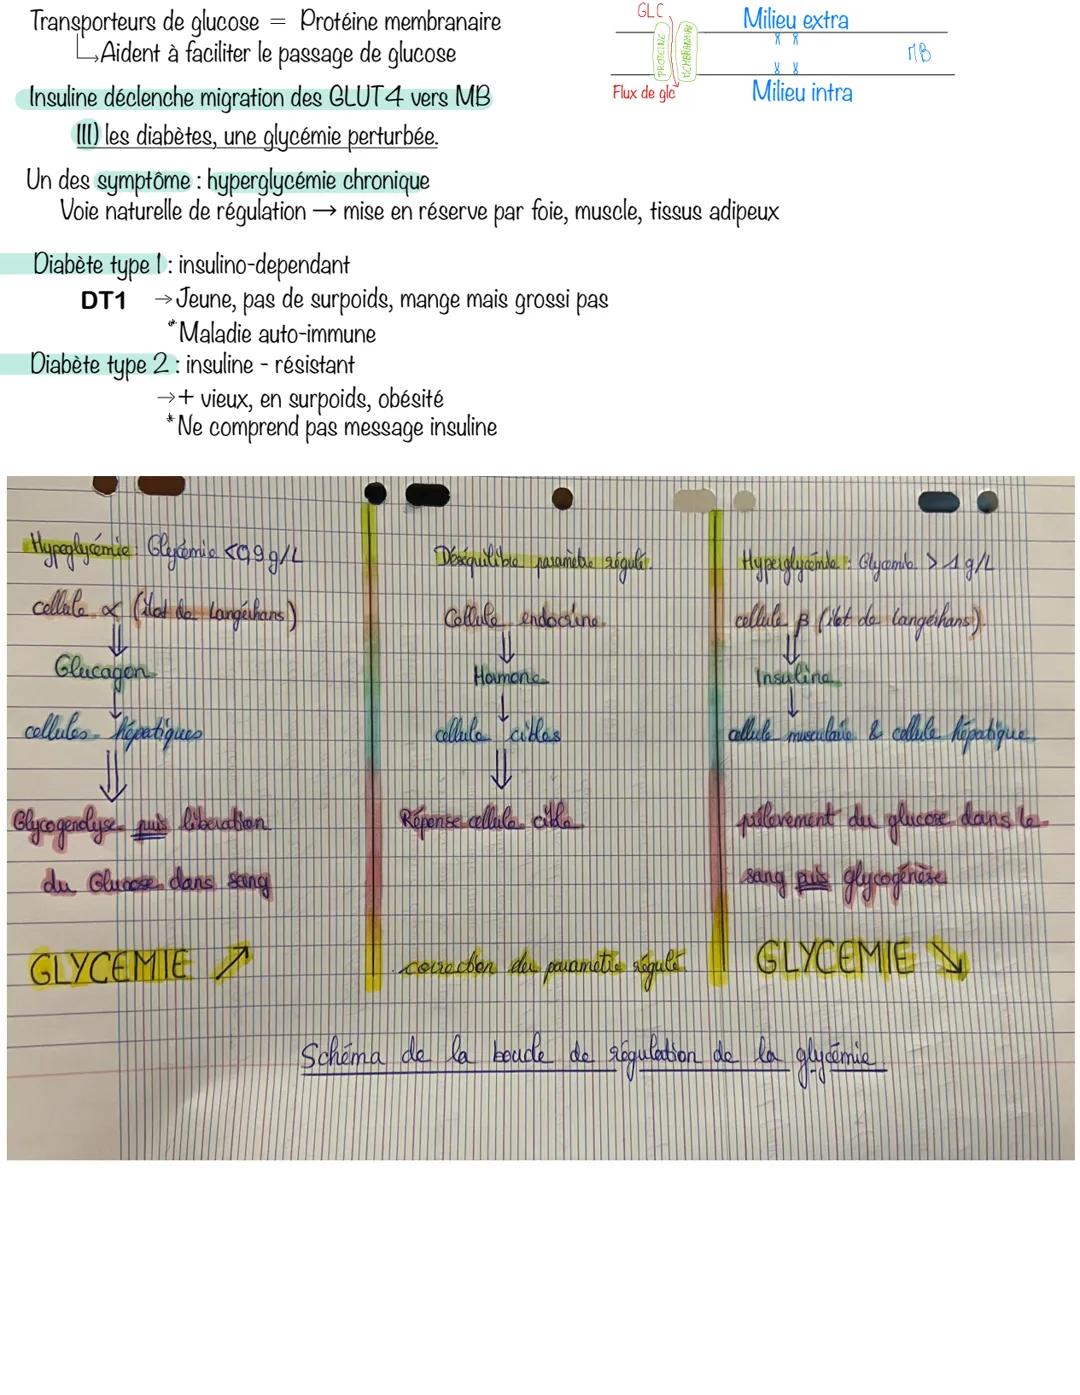 Transporteurs de glucose = Protéine membranaire
↳Aident à faciliter le passage de glucose
GLC
Milieu extra
PROTEINE
MEMBRANAIRE
MB
Flux de glc
Milieu intra
Insuline déclenche migration des GLUT4 vers MB
III) les diabètes, une glycémie perturbée.
Un des symptôme : hyperglycémie chronique
Voie naturelle de régulation → mise en réserve par foie, muscle, tissus adipeux
Diabète type 1 : insulino-dependant
DT1 → Jeune, pas de surpoids, mange mais grossi pas
* Maladie auto-immune
Diabète type 2 : insuline - résistant
→ + vieux, en surpoids, obésité
* Ne comprend pas message insuline
Hypoglycémie : Glycémie < 0,9 g/L
cellule α (ilot de Langéihans)
⇓
Glucagon
↓
cellules hépatiques
⇓
Glycogenolyse puis libération
du Glucose dans sang
GLYCEMIE ↗
Déséquilibre paramètre régulé.
Cellule endocrine
⇓
Hormone
↓
cellule cibles
⇓
Réponse cellule cible
correction du paramètre régulé
Hyperglycémie : Glycémie > 1 g/L
cellule β (ilot de Langéihans).
⇓
Insuline
↓
cellule musculaire & cellule hépatique.
prélevement du glucose dans le
sang puis glycogénèse
GLYCEMIE ↘
Schéma de la boucle de régulation de la glycémie